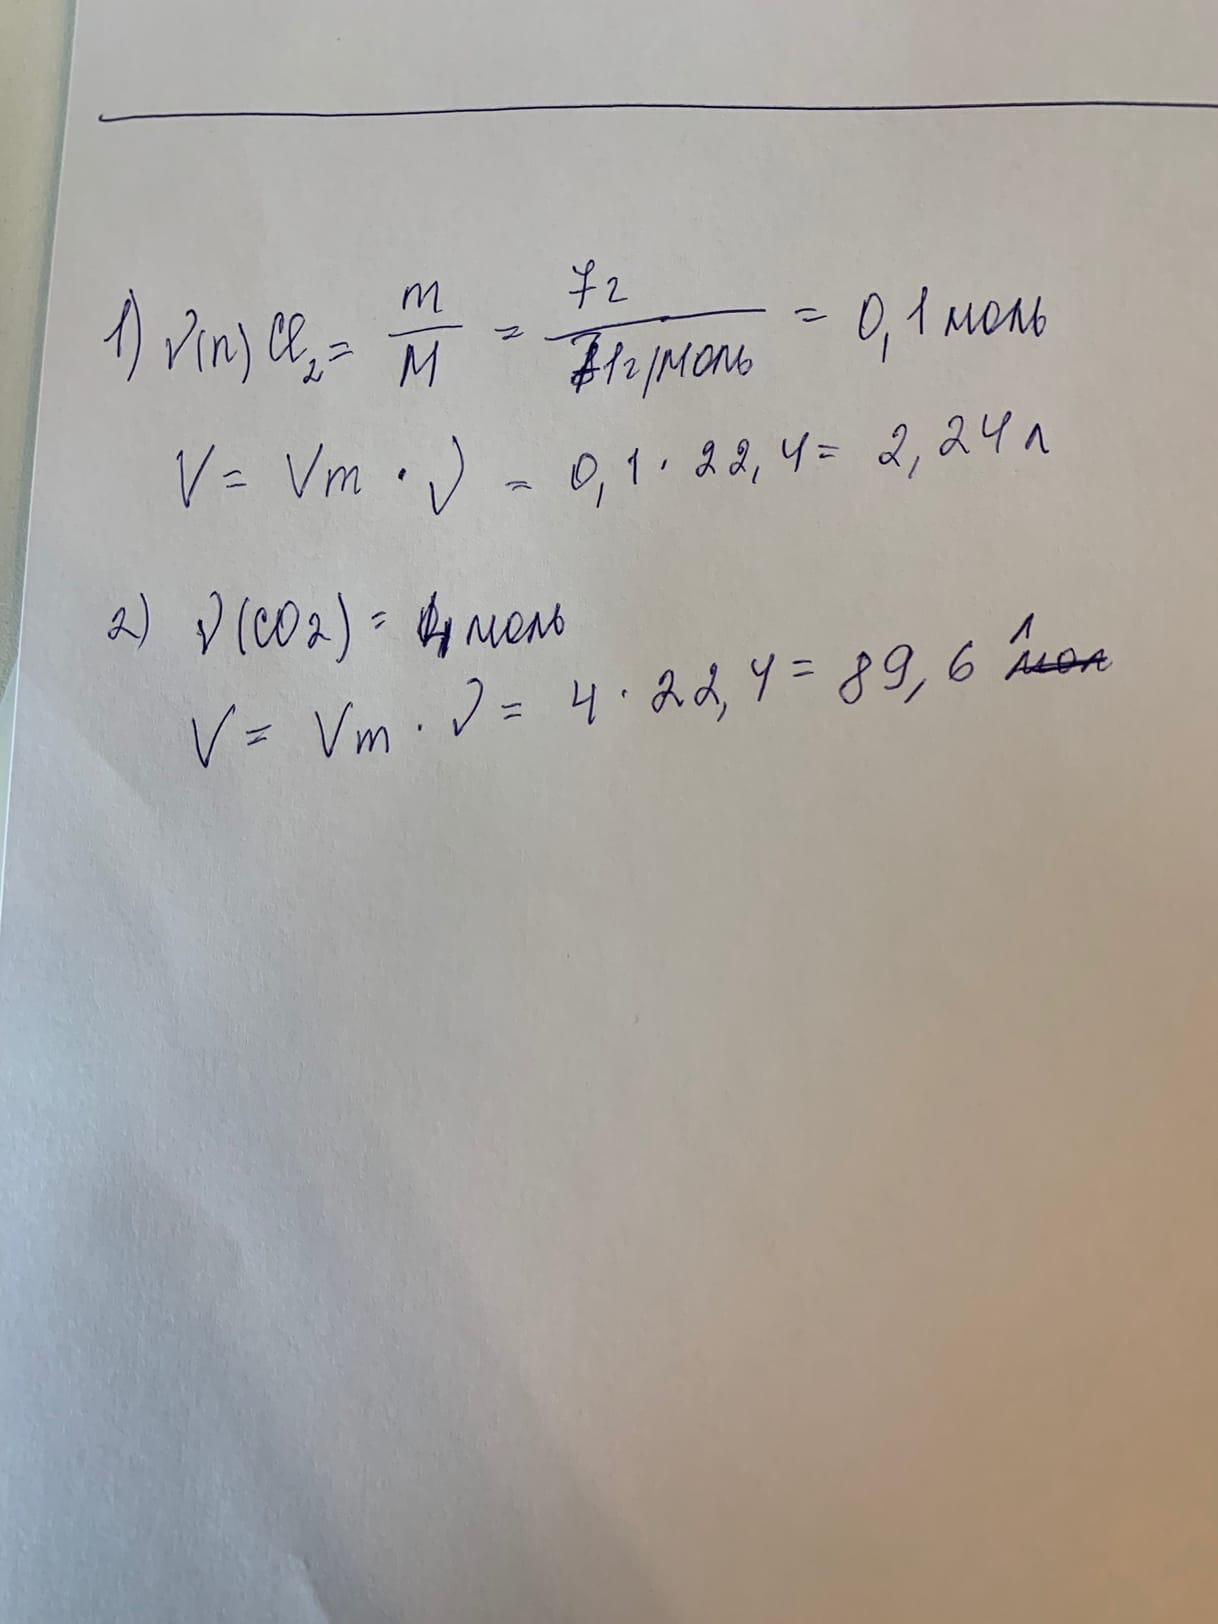 1) ν(n) Cl₂ = m/M = 7г/71г/моль = 0,1 моль
V = Vm · ν = 0,1 · 22,4 = 2,24 л
2) ν(CO2) = 4 моль
V = Vm · ν = 4 · 22,4 = 89,6 л